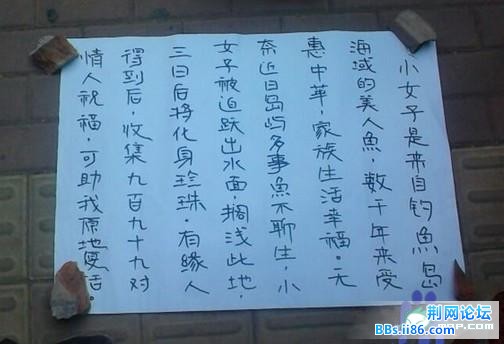 小女子是来自钓魚岛
海域的美人魚，数千年来受
惠中华，家族生活幸福。无
奈近日岛屿多事魚不聊生，小
女子被迫跃出水面，搁浅此地，
三日后将化身珍珠。有缘人
得到后，收集九百九十九对
情人祝福，可助我原地复活。
荆网论坛
BBs.ii86.com